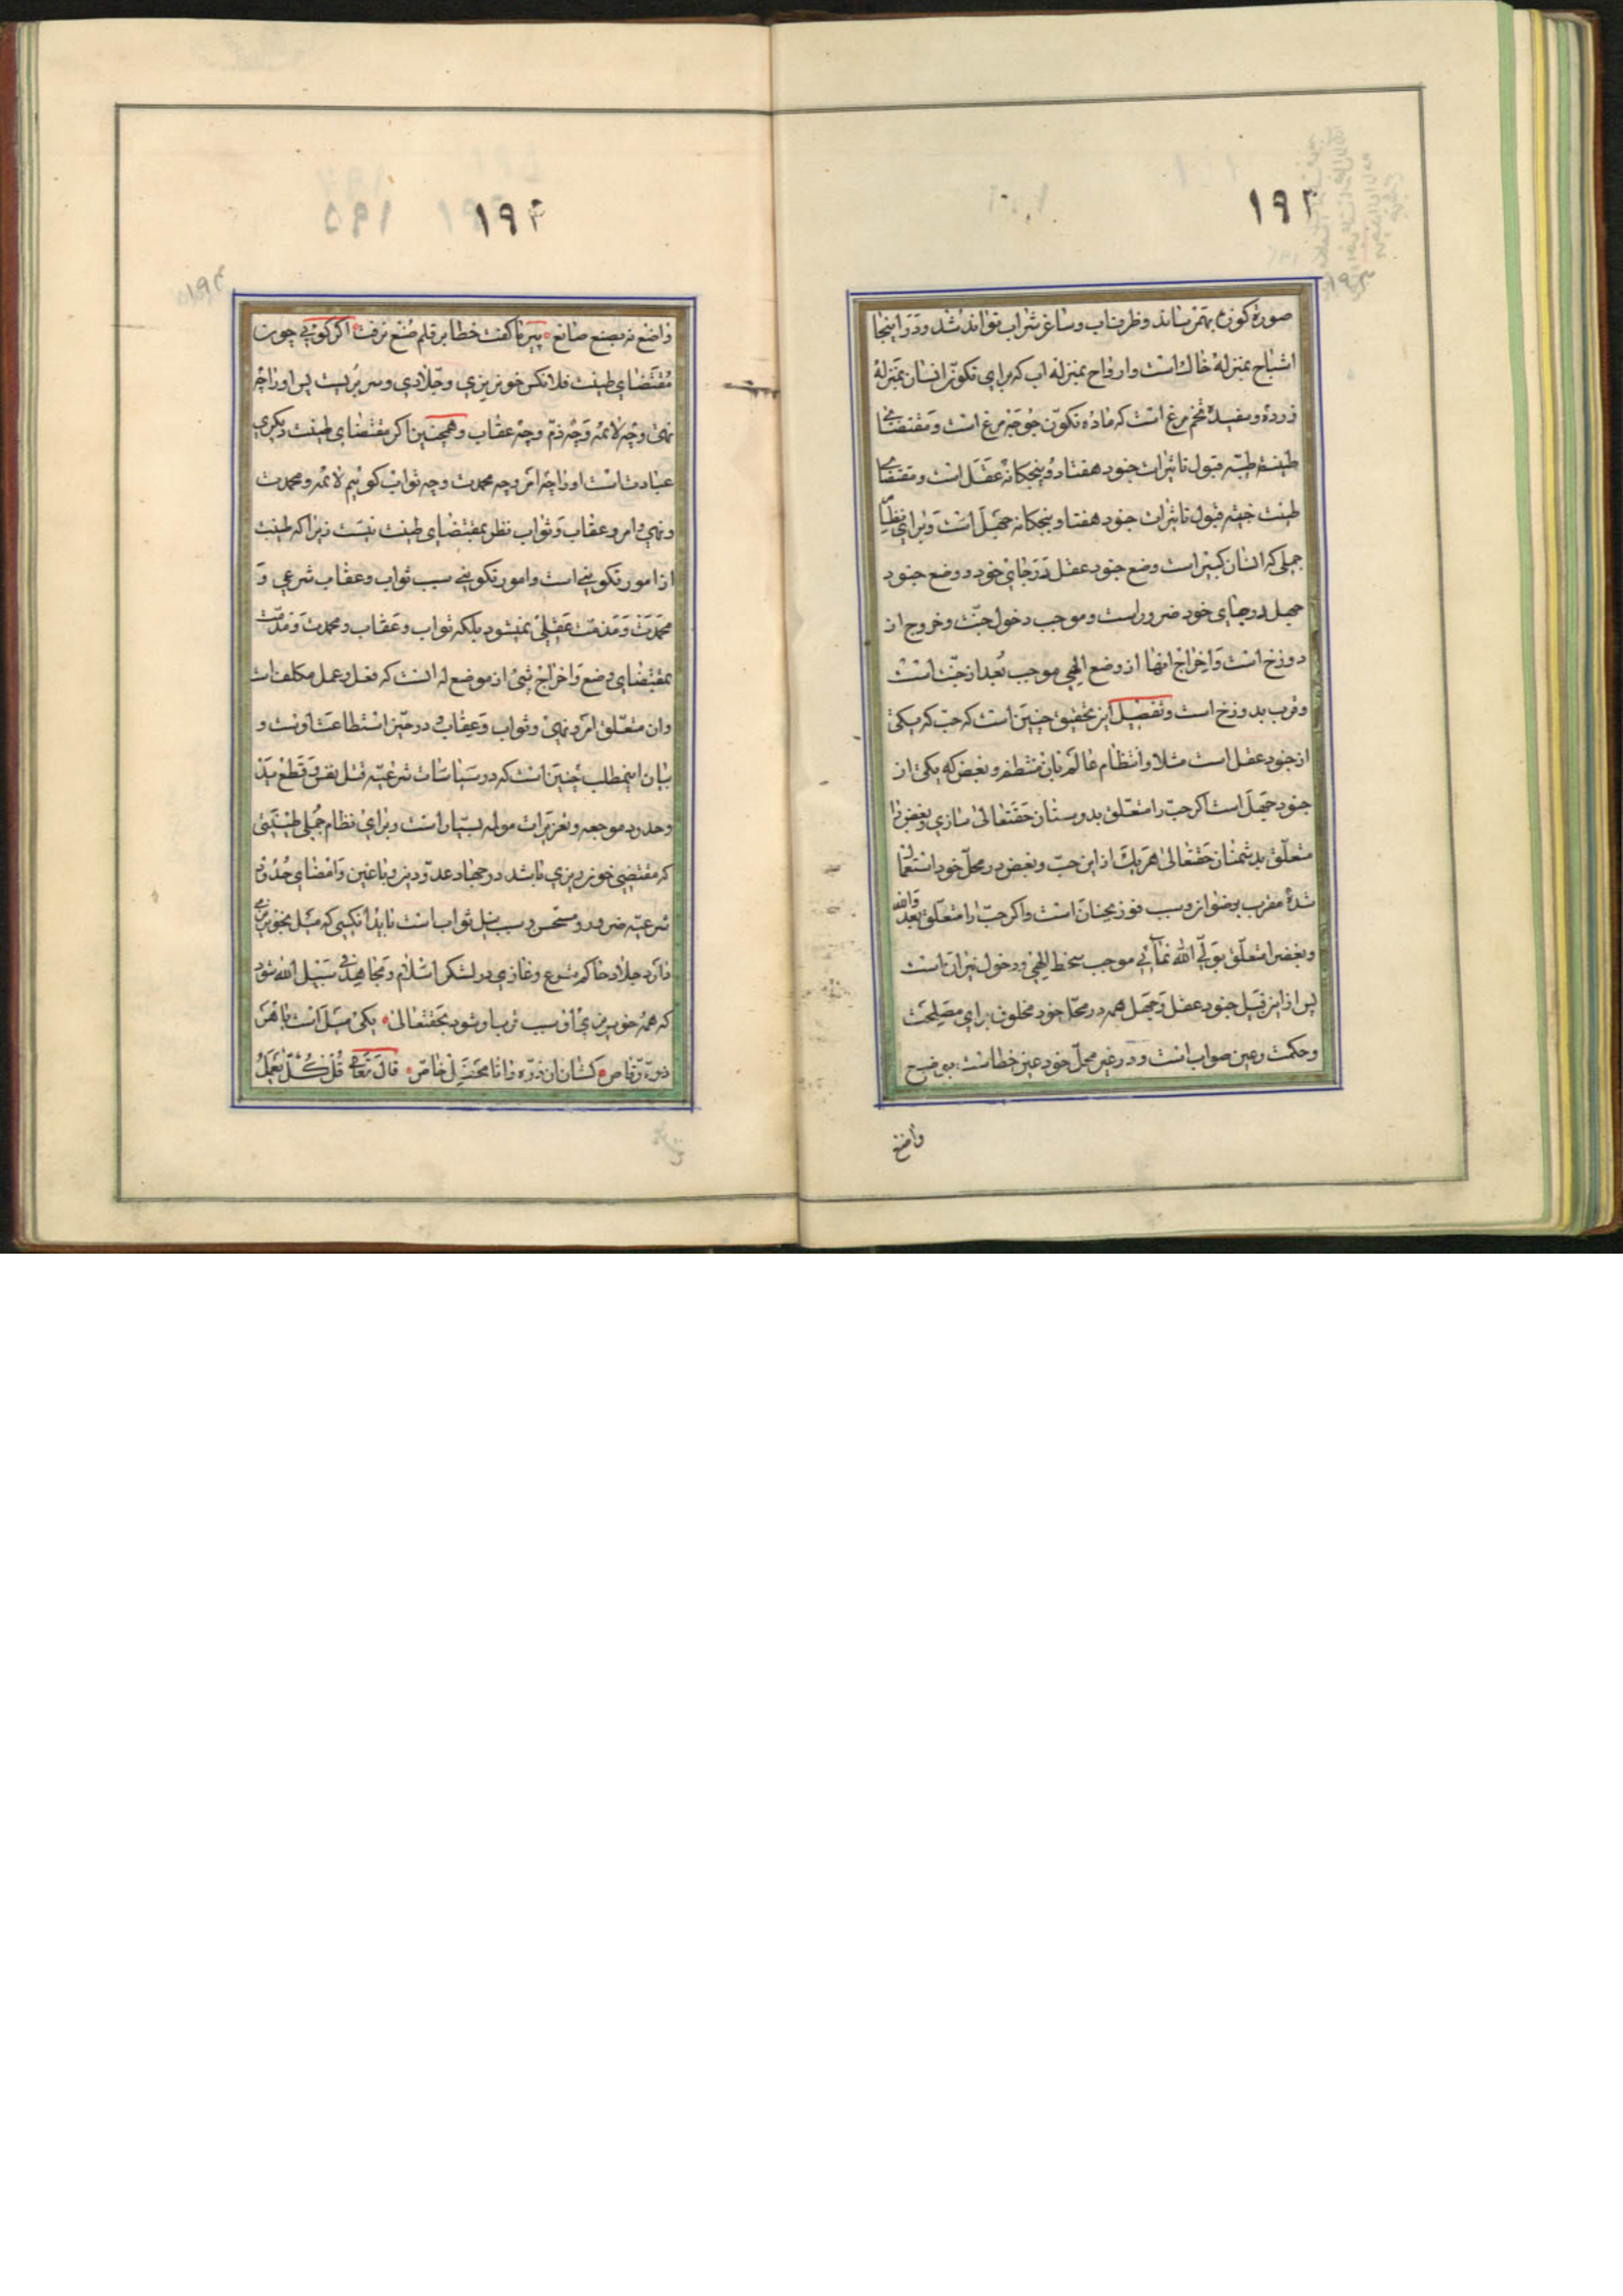 ۱۹۳
صورة کوزه بهم رساند و ظرف اب و ساغر شراب تواند شد و در اینجا
اشباح بمنزلهٔ خاک است و ارواح بمنزله اب که برای تکوّن انسان بمنزلهٔ
زرده و سفیدهٔ تخم مرغ است که ماده تکوّن جوجهٔ مرغ است و مقتضای
طینت طیّبه قبول تاثیرات جنود هفتاد و پنجکانهٔ عقل است و مقتضای
طینت خبیثه قبول تاثیرات جنود هفتاد و پنجکانه جهل است و برای نظام
جملی که انسان کبیر است وضع جنود عقل در جای خود و وضع جنود
جهل در جای خود ضرور است و موجب دخول جنّت و خروج از
دوزخ است و اخراج انها از وضع الهی موجب بُعد از جنّت است
و قرب بدوزخ است و تفصیل این تحقیق چنین است که حبّ که یکی
از جنود عقل است مثلا و انتظام عالم بان منتظم و بغض که یکی از
جنود جهل است اکر حبّ را متعلّق بدوستان حقتعالی سازی و بغض را
متعلّق بدشمنان حقتعالی هر یک از این حبّ و بغض در محلّ خود استعمال
شدهٔ مقرب برضوان و سبب فوز بجنان است و اکر حبّ را متعلّق بعدوّ الله
و بغض را متعلّق بولیّ الله نمائی موجب سخط الهی و دخول نیران است
پس از این قبیل جنود عقل و جهل همه در محلّ خود مخلوق برای مصلحت
و حکمت و عین صواب است و در غیر محلّ خود عین خطاست بوضع
واضع
۱۹۴
واضع نه بصنع صانع پیر ما کفت خطا بر قلم صُنع نرفت اکر کوئی چون
مقتضای طینت فلانکس خونریزی و جلّادی و سر بُریست پس او را چه
نهی و چه لائمه و چه ذمّ و چه عقاب و همچنین اکر مقتضای طینت دیکری
عبادت است او را چه امر و چه محمدت و چه ثواب کوئیم لائمه و محمدت
و نهی و امر و عقاب و ثواب نظر بمقتضای طینت نیست زیرا که طینت
از امور تکوینی است و امور تکوینی سبب ثواب و عقاب شرعی و
محمدت و مذمّت عقلی نمیشود بلکه ثواب و عقاب و محمدت و مذمّت
بمقتضای وضع و اخراج شیئ از موضع له است که فعل و عمل مکلف است
و ان متعلّق امر و نهی و ثواب و عقاب و در حیّز استطاعت اوست و
بیان اینمطلب چنین است که در سیاسات شرعیّه قتل نفس و قطع ید
و حدود موجعه و تعزیرات مولمه بسیار است و برای نظام جُملی طینتی
که مقتضی خونریزی باشد در جهاد عدوّ دین و باغین و امضای حُدُود
شرعیّه ضرور و مستحسن و سبب نیل ثواب است باید انکسی که میل بخونریزی
دارد جلاد حاکم متبوع و غازی در لشکر اسلام و مجاهد فی سبیل الله شود
که همه خونریزی او سبب تقرب او شود بحقتعالی یکی میل است با هر
ذرّه رقّاص کشان ان ذرّه را تا محضر خاصّ قال تعالی قُل کُلٌّ یَعمَلُ